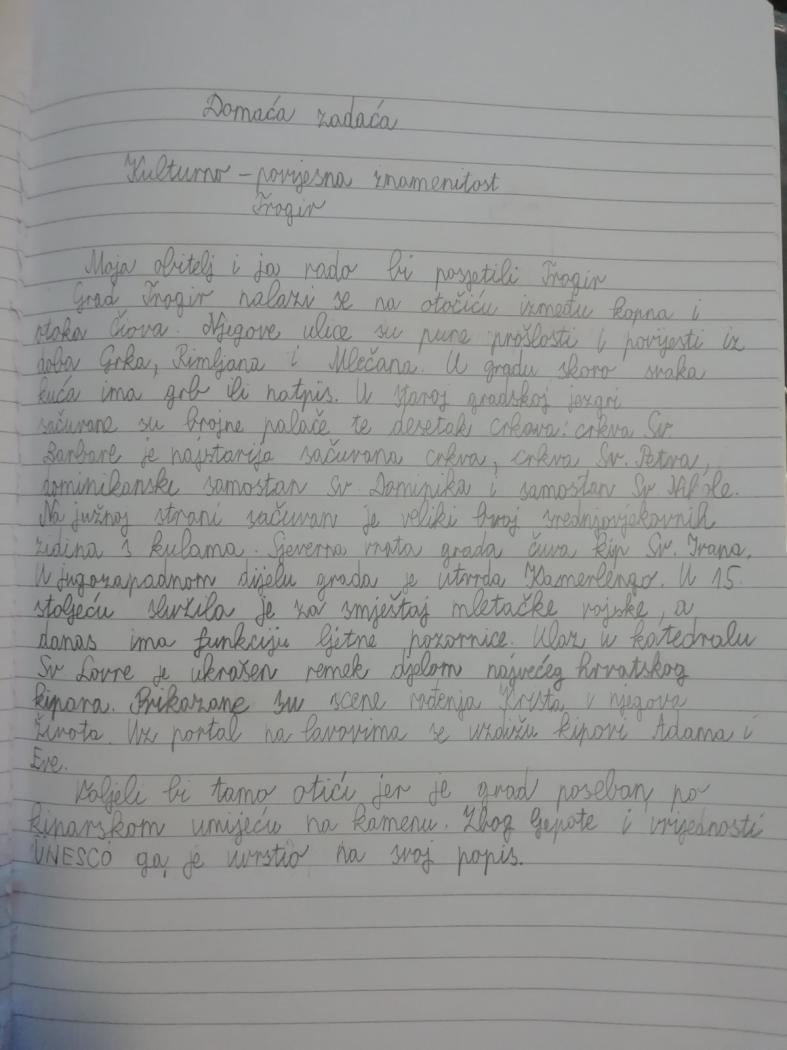 Domaća zadaća
Kulturno - povijesna znamenitost
Trogir
Moja obitelj i ja rado bi posjetili Trogir
Grad Trogir nalazi se na otočiću između kopna i
otoka Čiova. Njegove ulice su pune prošlosti i povijesti iz
doba Grka, Rimljana i Mlečana. U gradu skoro svaka
kuća ima grb ili natpis. U staroj gradskoj jezgri
sačuvane su brojne palače te desetak crkava: crkva Sv
Barbare je najstarija sačuvana crkva, crkva Sv. Petra,
dominikanski samostan Sv. Dominika i samostan Sv Nikole.
Na južnoj strani sačuvan je veliki broj srednjovjekovnih
zidina s kulama. Sjeverna vrata grada čuva kip Sv. Ivana.
U jugozapadnom dijelu grada je utvrda Kamerlengo. U 15.
stoljeću služila je za smještaj mletačke vojske, a
danas ima funkciju ljetne pozornice. Ulaz u katedralu
Sv Lovre je ukrašen remek djelom najvećeg hrvatskog
kipara. Prikazane su scene rođenja Krista i njegova
života. Uz portal na lavovima se uzdižu kipovi Adama i
Eve.
Voljeli bi tamo otići jer je grad poseban po
kiparskom umijeću na kamenu. Zbog ljepote i vrijednosti
UNESCO ga je uvrstio na svoj popis.